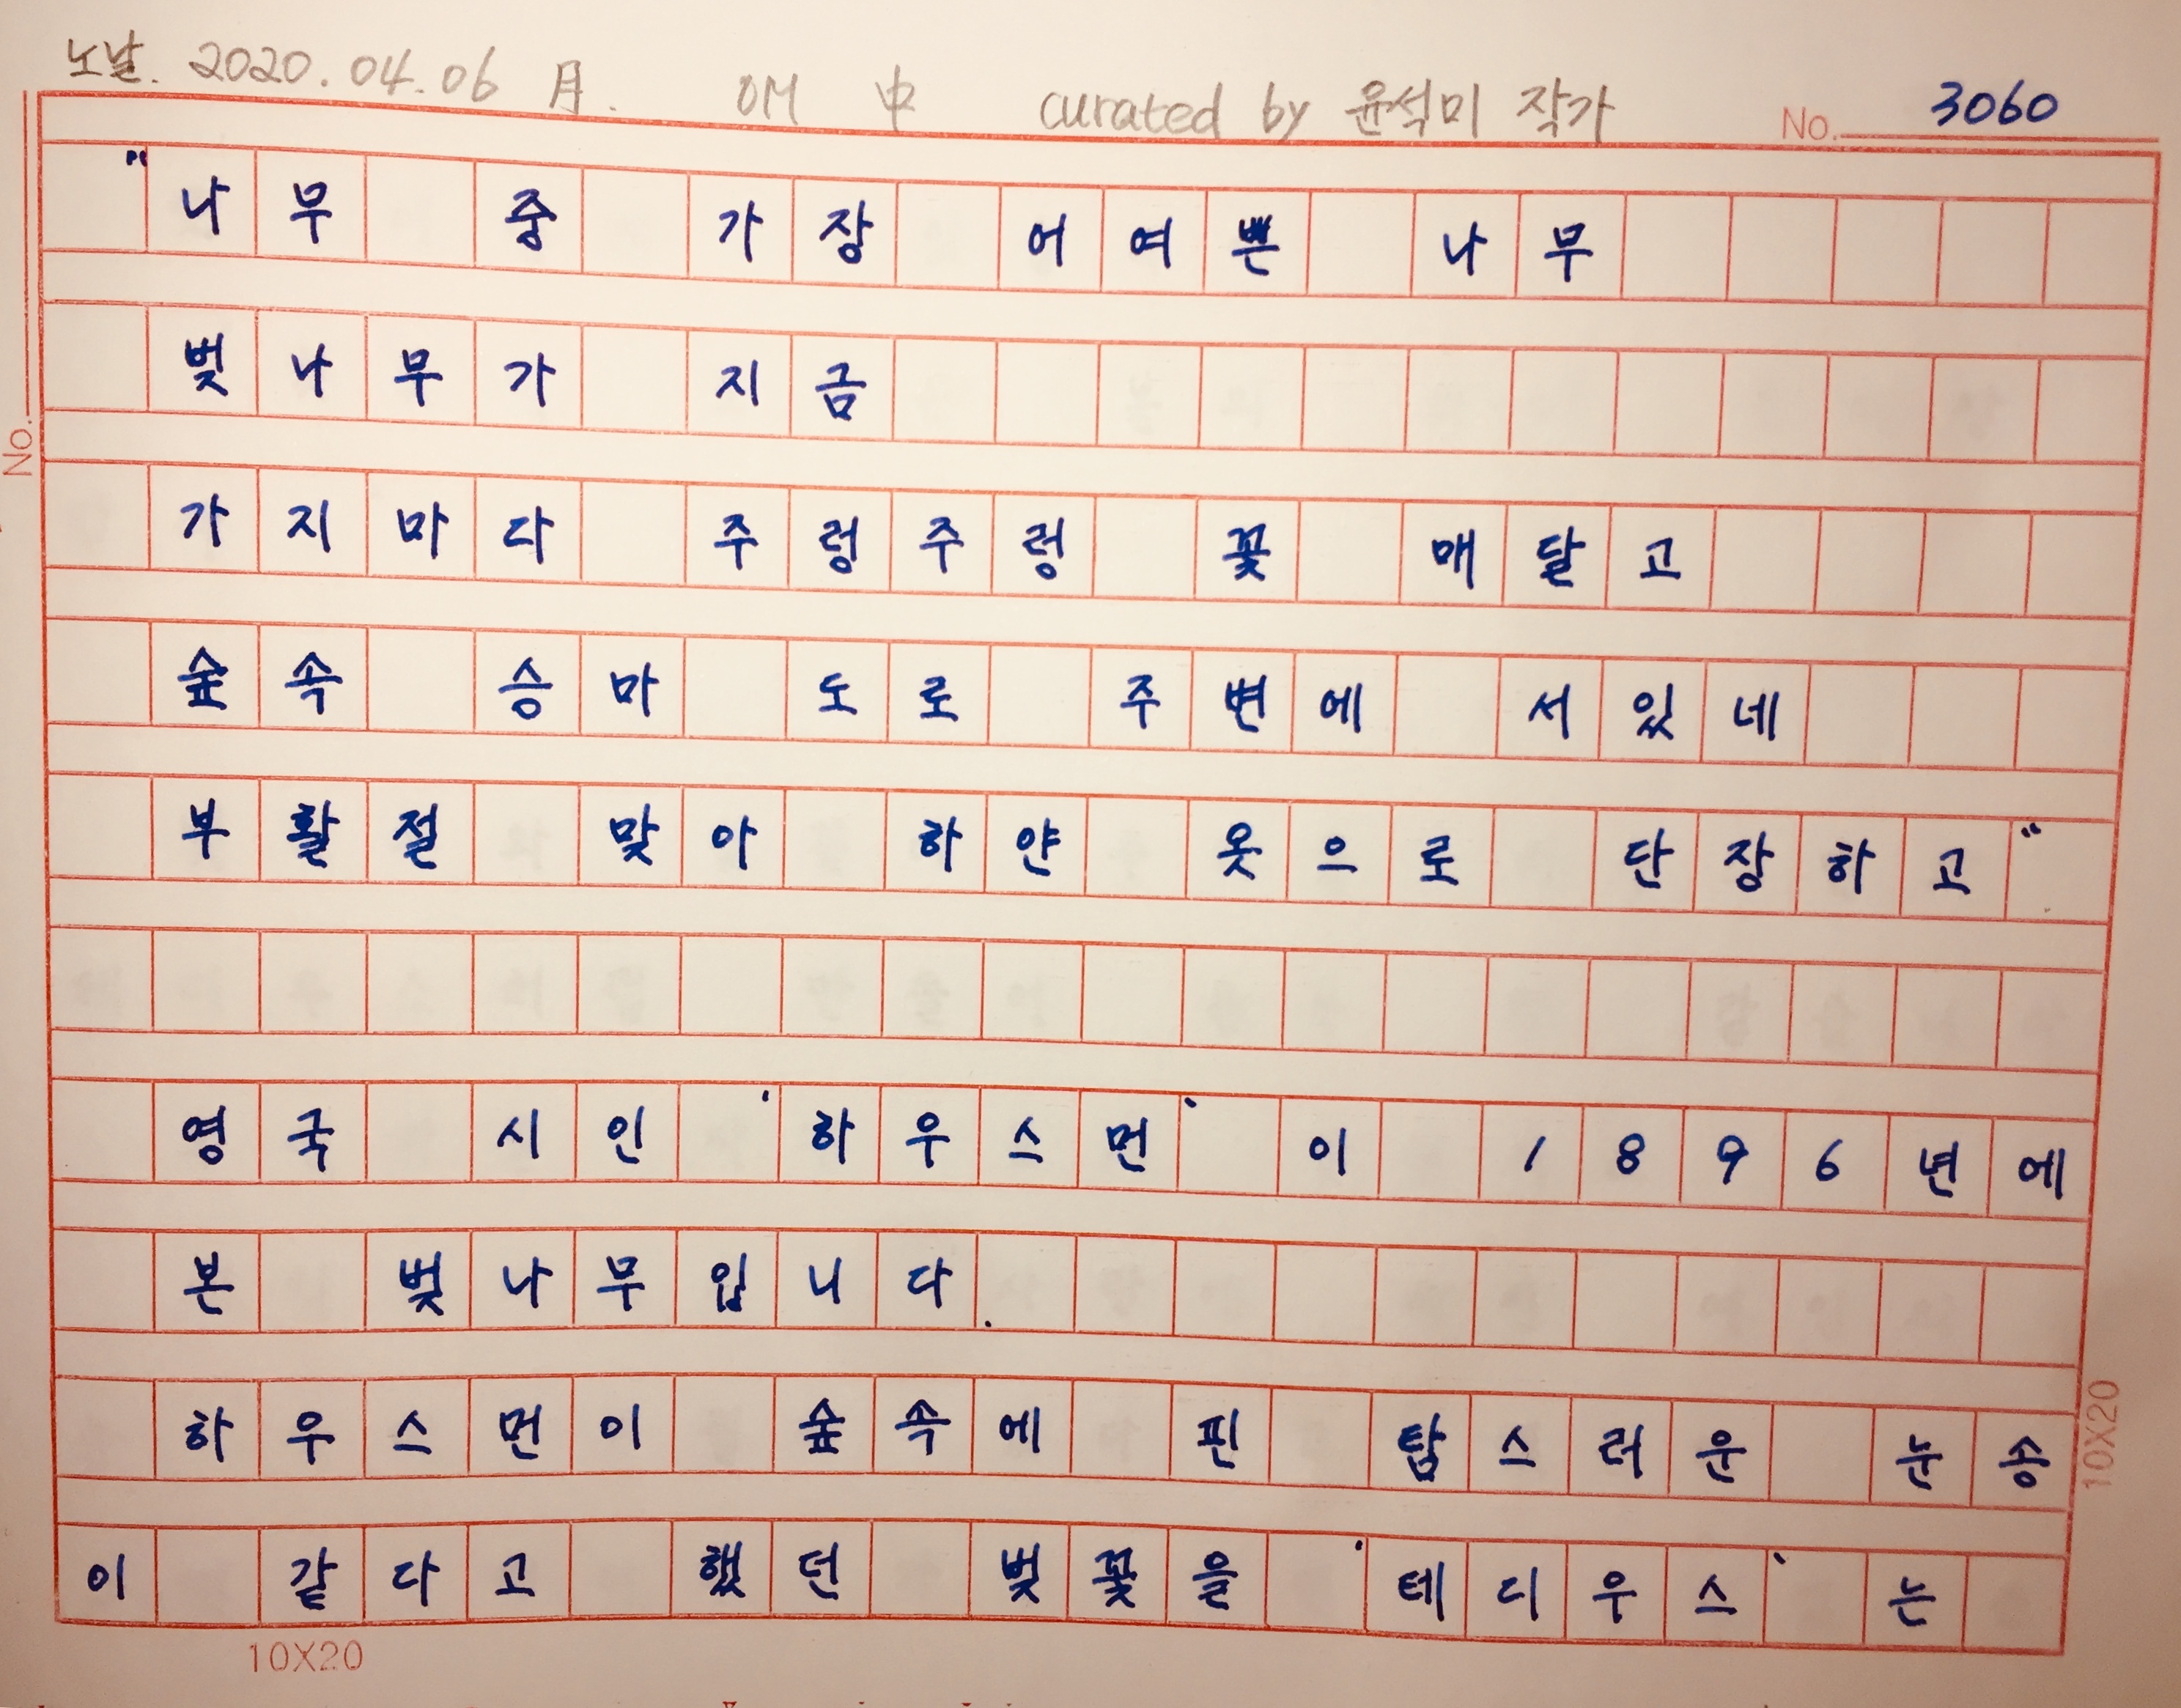 노날. 2020.04.06 月. OM 中 curated by 윤석미 작가 No. 3060
"나무 중 가장 어여쁜 나무
벚나무가 지금
가지마다 주렁주렁 꽃 매달고
숲속 승마 도로 주변에 서있네
부활절 맞아 하얀 옷으로 단장하고"
영국 시인 '하우스먼'이 1896년에
본 벚나무입니다.
하우스먼이 숲속에 핀 탐스러운 눈송
이 같다고 했던 벚꽃을 '테디우스'는
No.
10X20
10X20